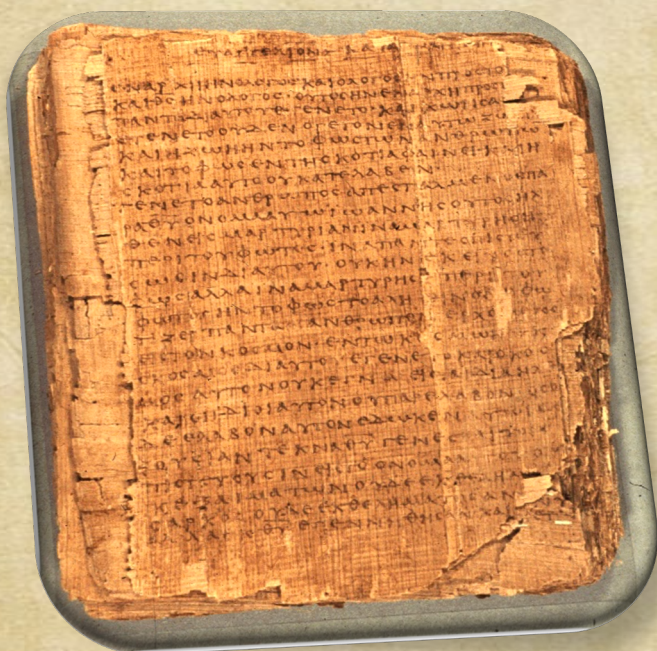 ΕΥΑΓΓΕΛΙΟΝ ΚΑΤΑ
ΕΝΑΡΧΗΗΝΟΛΟΓΟϹΚΑΙΟΛΟΓΟϹΗΝΠΡΟϹΤΟ
ΚΑΙΘϹΗΝΟΛΟΓΟϹ·ΟΥΤΟϹΗΝΕΝΑΡΧΗΠΡΟϹ
ΠΑΝΤΑΔΙΑΥΤΟΥΕΓΕΝΕΤΟΚΑΙΧΩΡΙϹΑ
ΕΓΕΝΕΤΟΟΥΔΕΝΟΓΕΓΟΝΕΝΕΝΑΥΤΩΖΩ
ΚΑΙΗΖΩΗΗΝΤΟΦΩϹΤΩΝΑΝΘΡΩΠΩ
ΚΑΙΤΟΦΩϹΕΝΤΗϹΚΟΤΙΑΦΑΙΝΕΙΚΑΙΗ
ϹΚΟΤΙΑΑΥΤΟΟΥΚΑΤΕΛΑΒΕΝ
ΕΓΕΝΕΤΟΑΝΘΡΩΠΟϹΑΠΕϹΤΑΛΜΕΝΟϹΠΑ
ΡΑΘΥΟΝΟΜΑΑΥΤΩΙΩΑΝΝΗϹΟΥΤΟϹΗΛ
ΘΕΝΕΙϹΜΑΡΤΥΡΙΑΝΙΝΑΜΑΡΤΥΡΗϹΗ
ΠΕΡΙΤΟΥΦΩΤΟϹΙΝΑΠΑΝΤΕϹΠΙϹΤΕΥ
ϹΩϹΙΝΔΙΑΥΤΟΥ·ΟΥΚΗΝΕΚΕΙΝΟϹΤΟ
ΦΩϹΑΛΛΑΙΝΑΜΑΡΤΥΡΗϹΗΠΕΡΙΤΟΥ
ΦΩΤΟϹΗΝΤΟΦΩϹΤΟΑΛΗΘΙΝΟΝΟΦΩ
ΤΙΖΕΙΠΑΝΤΑΑΝΘΡΩΠΟΝΕΡΧΟΜΕΝΟΝ
ΕΙϹΤΟΝΚΟϹΜΟΝΕΝΤΩΚΟϹΜΩΗΝΚΑΙΟ
ΚΟϹΜΟϹΔΙΑΥΤΟΥΕΓΕΝΕΤΟΚΑΙΟΚΟϹ
ΜΟϹΑΥΤΟΝΟΥΚΕΓΝΩΕΙϹΤΑΙΔΙΑΗΛΘΕ
ΚΑΙΟΙΙΔΙΟΙΑΥΤΟΝΟΥΠΑΡΕΛΑΒΟΝΟϹΟΙ
ΔΕΕΛΑΒΟΝΑΥΤΟΝΕΔΩΚΕΝΑΥΤΟΙϹΕ
ΞΟΥϹΙΑΝΤΕΚΝΑΘΥΓΕΝΕϹΘΑΙΤΟΙϹ
ΠΙϹΤΕΥΟΥϹΙΝΕΙϹΤΟΟΝΟΜΑΑΥΤΟΥΟΙ
ΟΥΚΕΞΑΙΜΑΤΩΝΟΥΔΕΕΚΘΕΛΗΜΑ
ϹΑΡΚΟϹΟΥΔΕΕΚΘΕΛΗΜΑΤΟϹΑΝ
ΑΛΛΑΕΚΘΥΕΓΕΝΝΗΘΗϹΑΝΚΑΙ